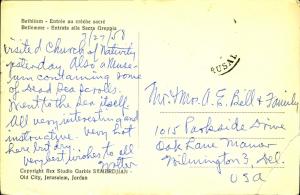 Bethlehem - Entrée au crèche sacré
Betlemme - Entrata alla Sacra Greppia
7/27/58
visited Church of Nativity
yesterday. Also a museum
containing some
of Dead Sea Scrolls.
Went to the sea itself.
All very interesting and
instructive. Very hot
here but dry.
Very best wishes to all
Walter
Copyright Rex Studio Garbis SEMERDJIAN
Old City, Jerusalem, Jordan
Mr. & Mrs. A. E. Bell & Family
1015 Parkside Drive
Oak Lane Manor
Wilmington 3, Del.
USA